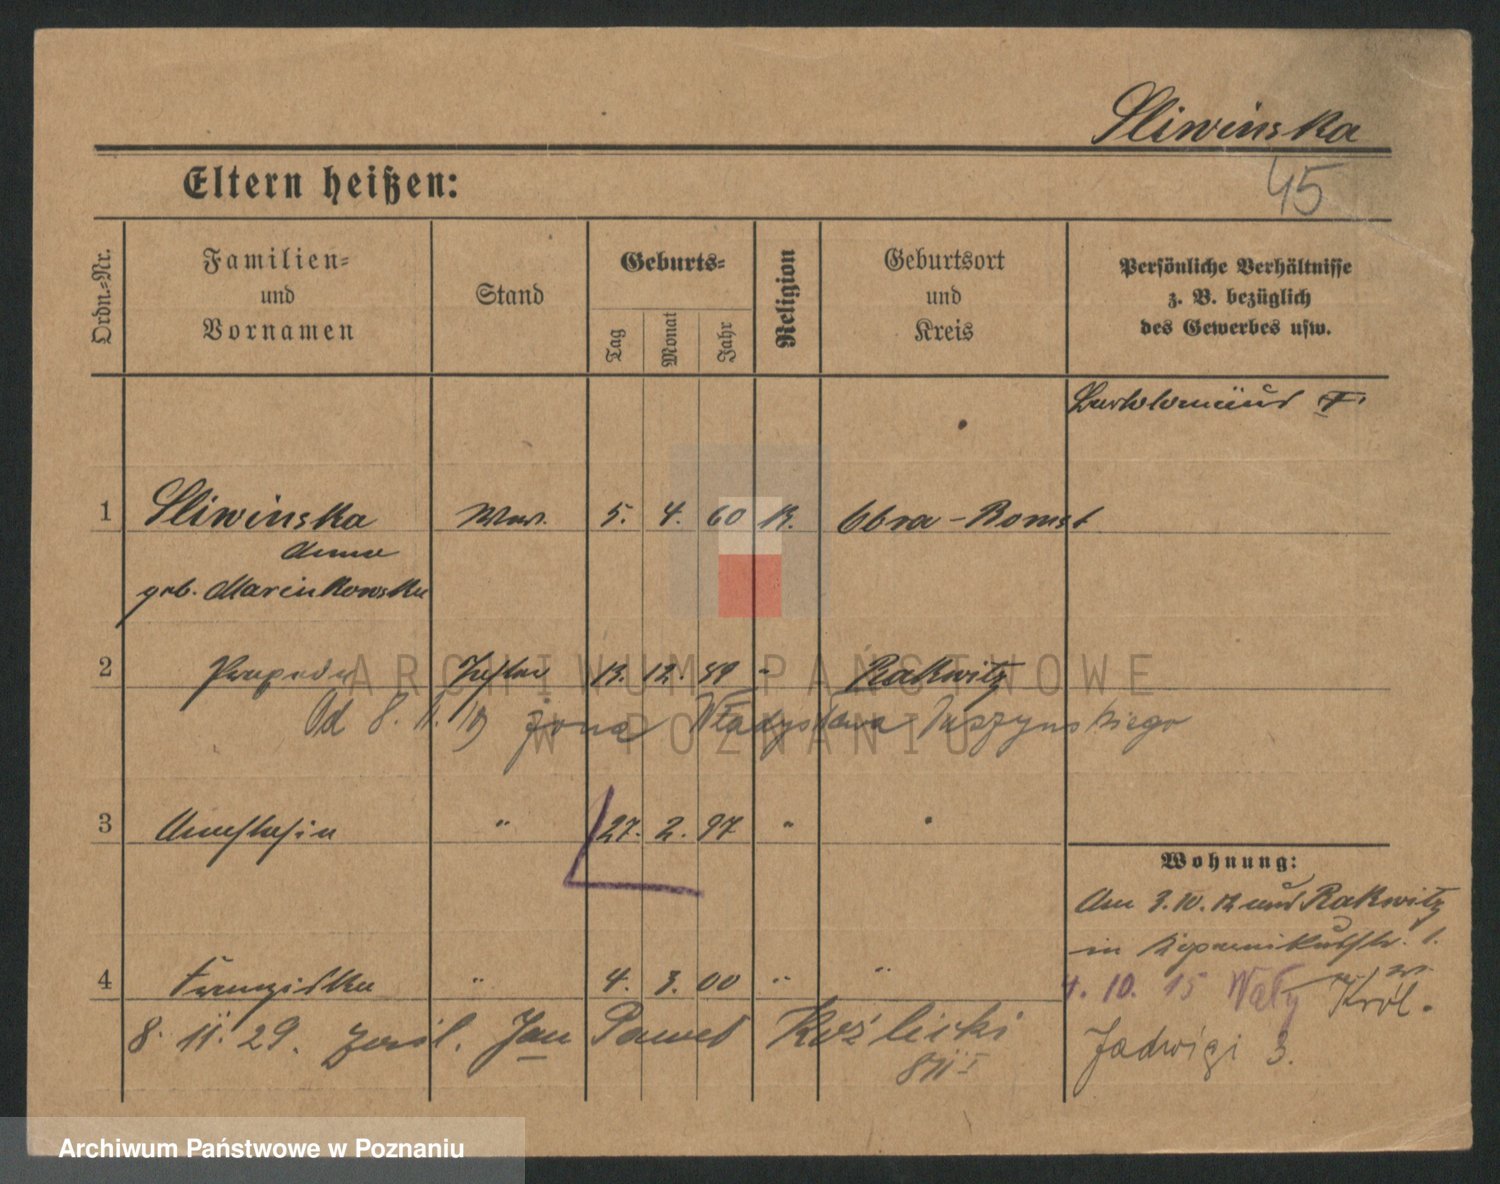 Sliwinska
45
Eltern heißen:
Ordn.-Nr.
Familien-
und
Vornamen
Stand
Geburts-
Tag
Monat
Jahr
Religion
Geburtsort
und
Kreis
Persönliche Verhältnisse
z. B. bezüglich
des Gewerbes usw.
Bartolomäus
1 Sliwinska Ww. 5. 4. 60 K. Obra - Bomst
Anna
geb. Marcinkowska
2 12. 89 " Rakwitz
Od 8. 11. żona Władysława
3 Anastasia " 27. 2. 97 "
Wohnung:
Am 3. 10. 12 Rakwitz
in 1.
4 Franziska " 4. 3. 00 " "
4. 10. 15 Wały
Król.
Jadwigi 3.
8. 11. 29. Jan Paweł Koźlicki
ARCHIWUM PAŃSTWOWE
W POZNANIU
Archiwum Państwowe w Poznaniu